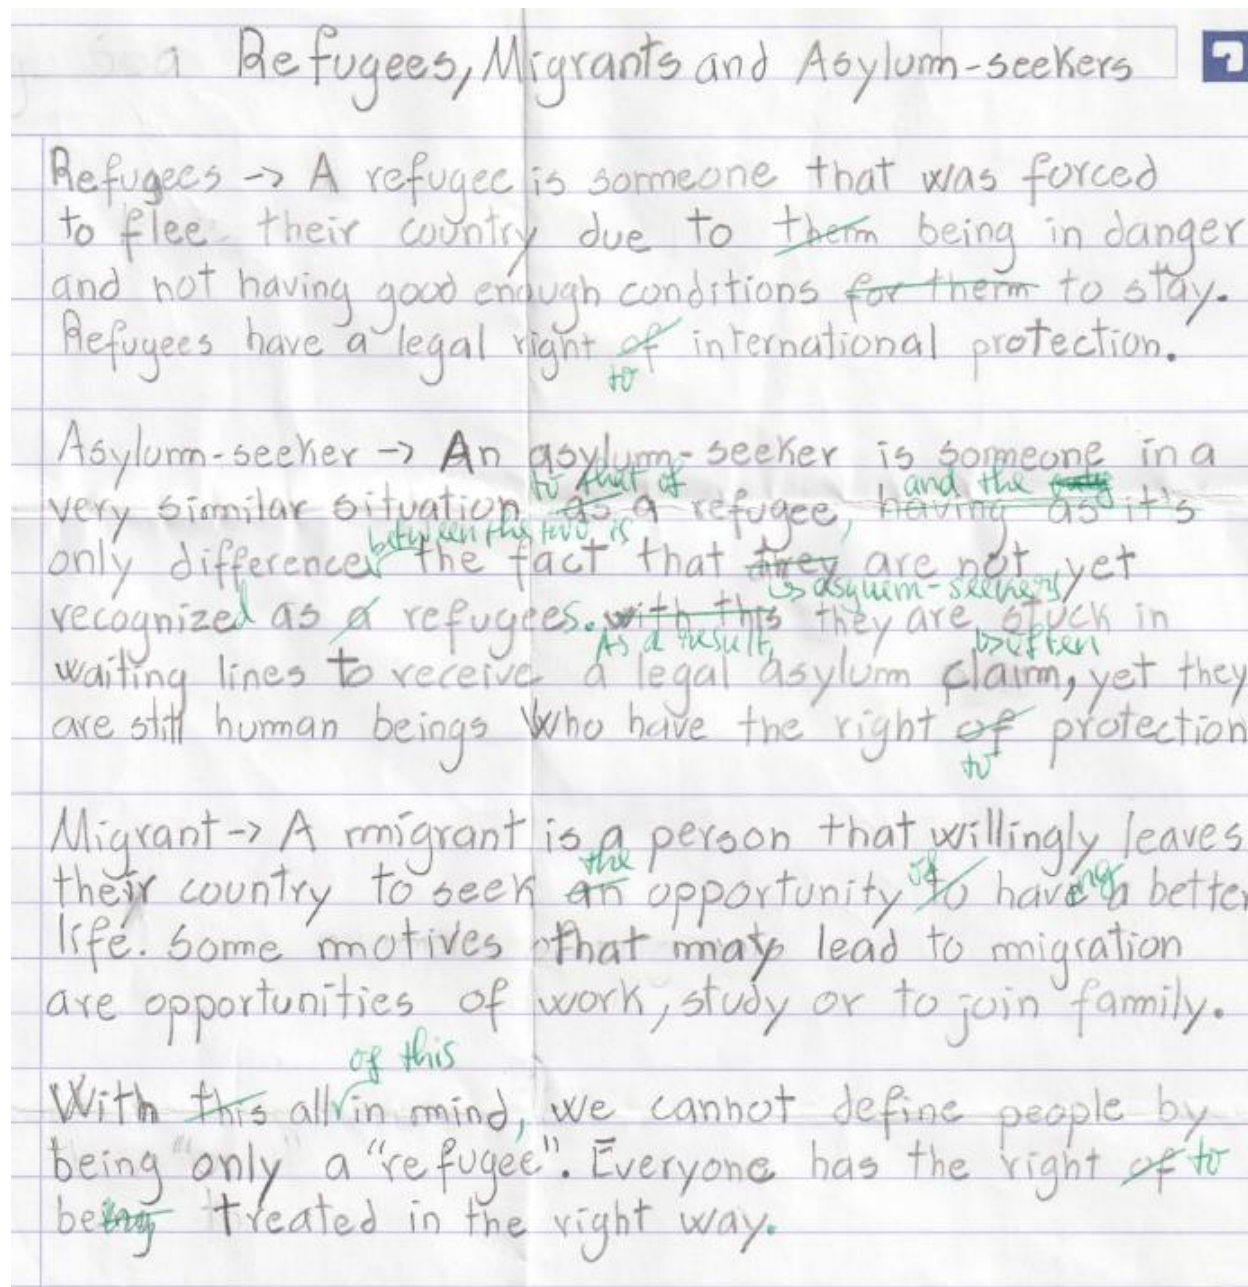 Refugees, Migrants and Asylum-seekers
Refugees -> A refugee is someone that was forced
to flee their country due to them being in danger
and not having good enough conditions for them to stay.
Refugees have a legal right of international protection.
to
Asylum-seeker -> An asylum-seeker is someone in a
to that of and the
very similar situation as a refugee, having as it's
between the two is
only difference the fact that they are not yet
↳ asylum-seekers
recognized as a refugees. with this they are stuck in
As a result, ↳ often
waiting lines to receive a legal asylum claim, yet they
are still human beings who have the right of protection
to
Migrant -> A migrant is a person that willingly leaves
the of ng
their country to seek an opportunity to have a better
life. Some motives that may lead to migration
are opportunities of work, study or to join family.
of this
With this all in mind, we cannot define people by
being "only" a "refugee". Everyone has the right of to
being treated in the right way.